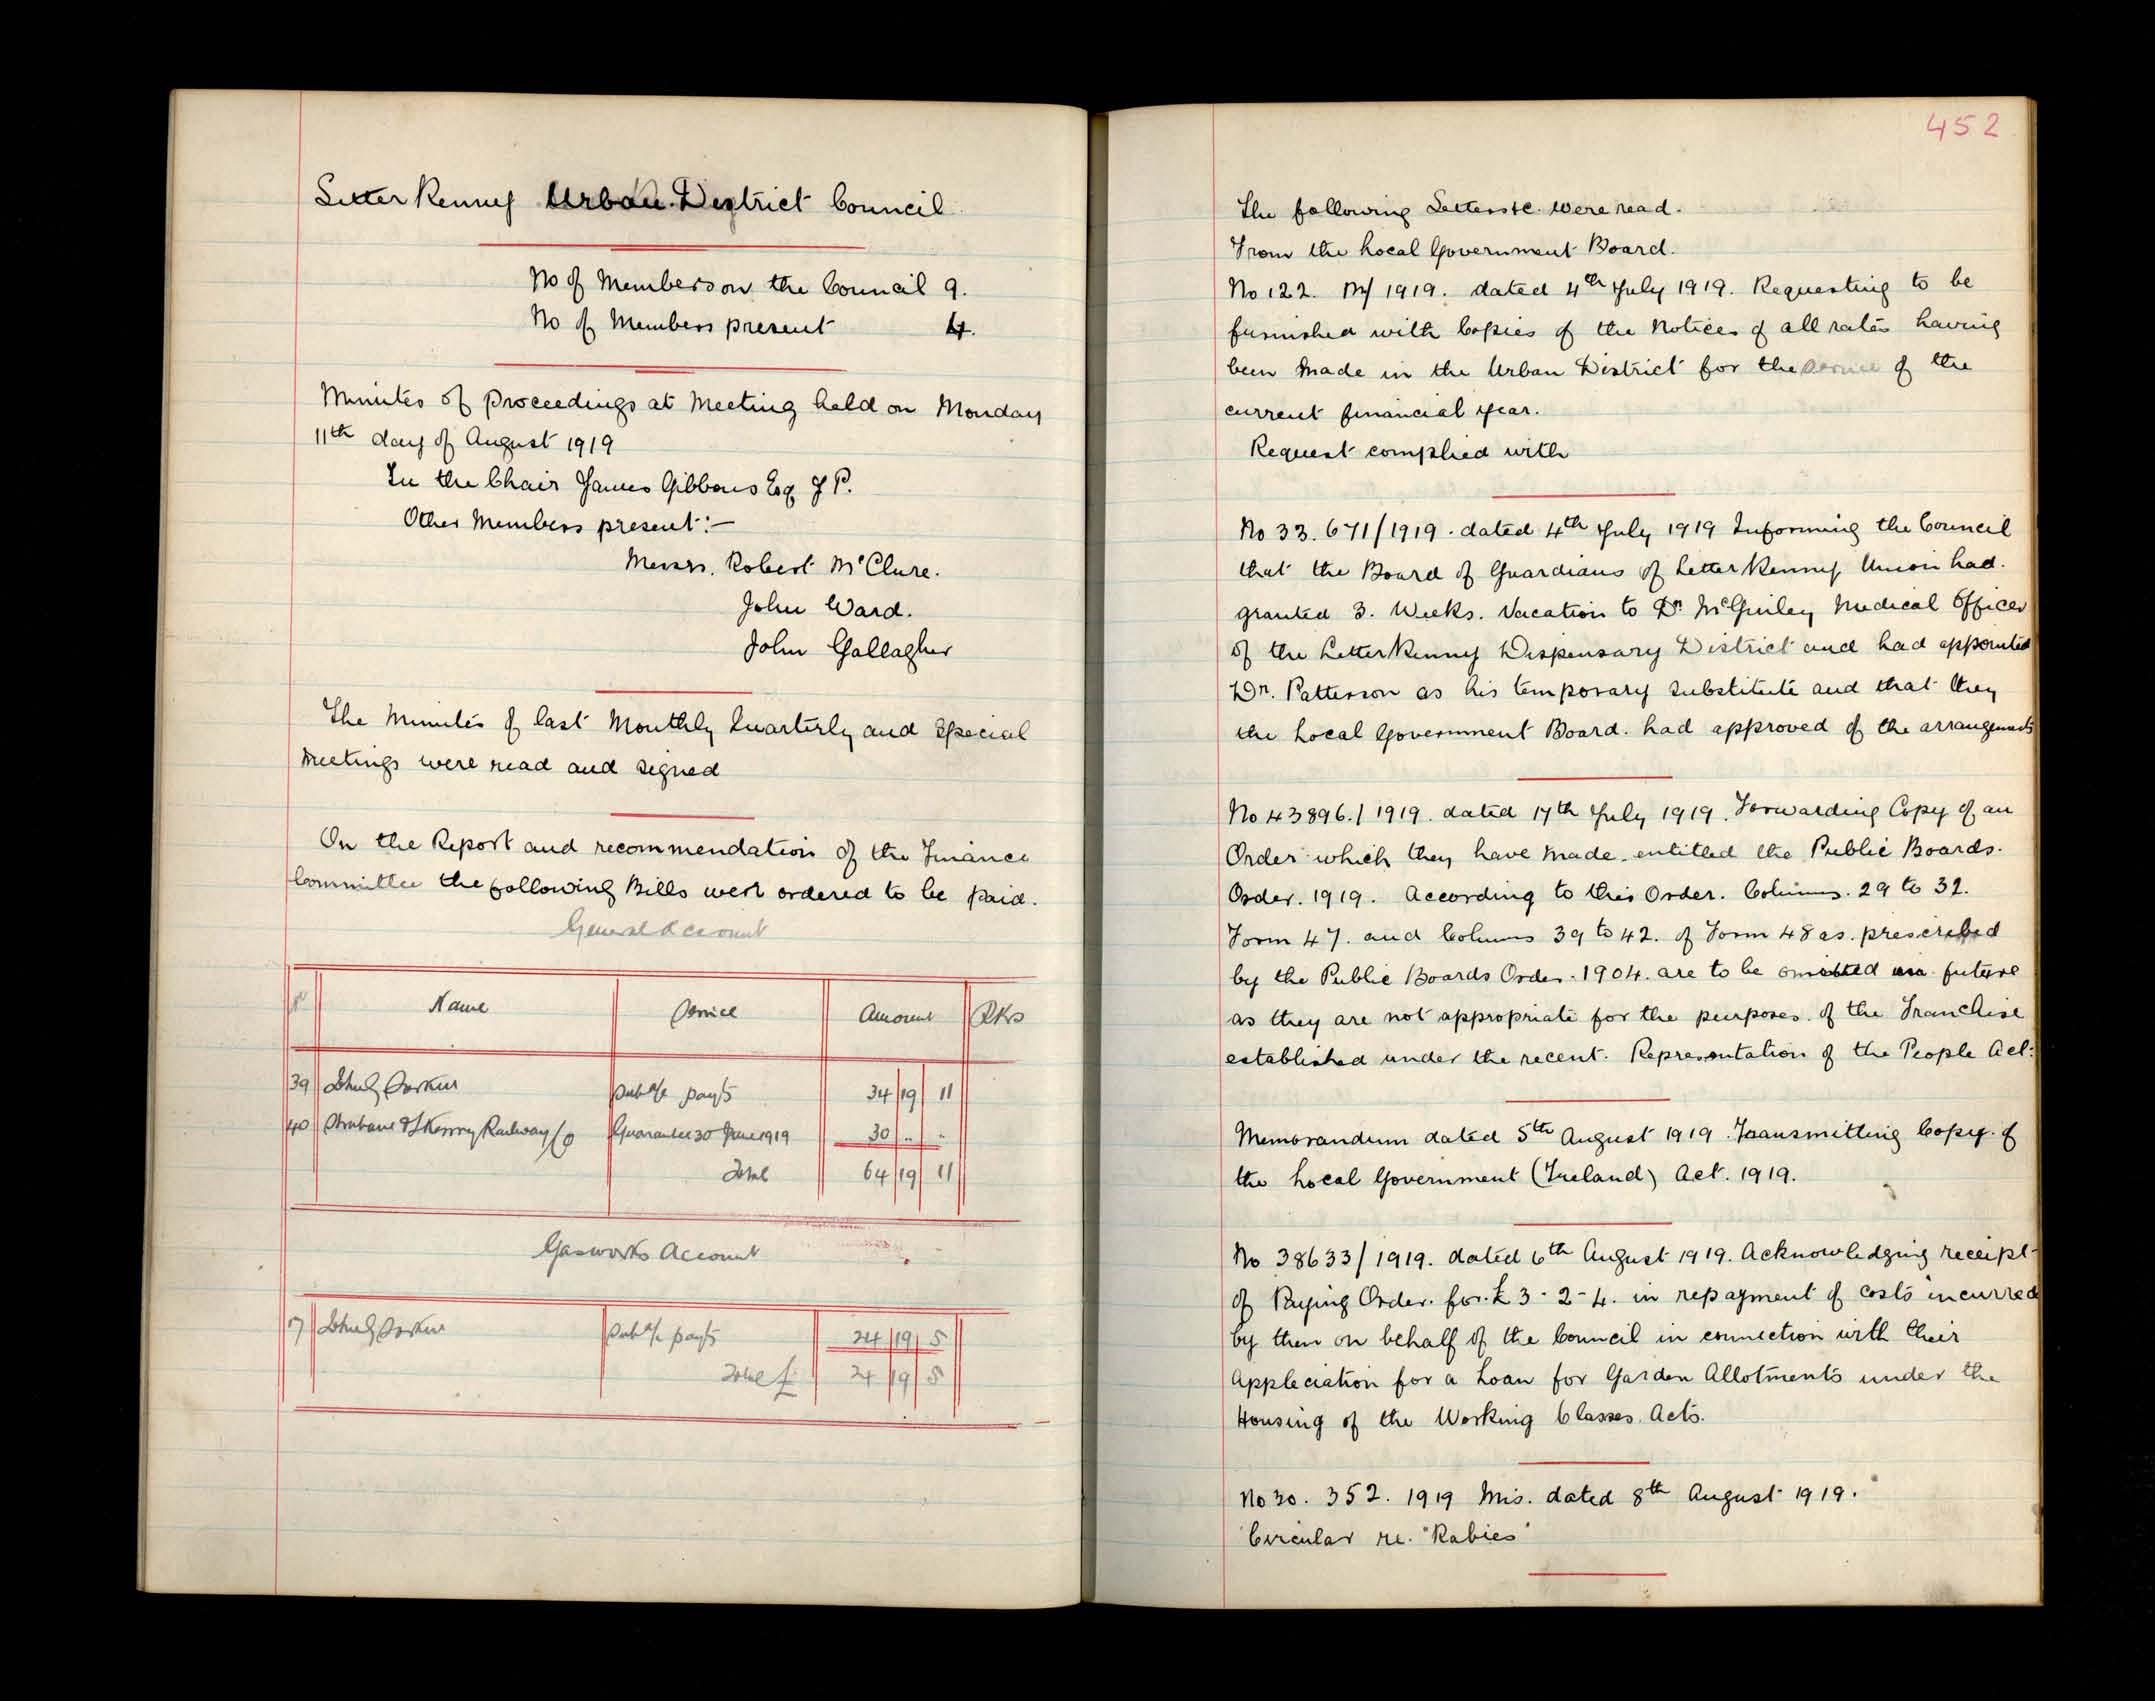 LetterKenny Urban District Council
No of Members on the Council 9.
No of Members present 4.
Minutes of Proceedings at Meeting held on Monday
11th day of August 1919
In the Chair James Gibbons Esq J P.
Other Members present:—
Messrs. Robert McClure.
John Ward.
John Gallagher
The Minutes of last Monthly Quarterly and Special
Meetings were read and signed
On the Report and recommendation of the Finance
Committee the following Bills were ordered to be paid.
General Account
No Name Service Amount Rks
39 Sub a/c payts 34 19 11
40 Strabane & LKenny Railway Co Guarantee 30 June 1919 30 .. ..
Total 64 19 11
Gasworks Account
17 Sub a/c payts 24 19 5
Total £ 24 19 5
452
The following Letters &c. were read.
From the Local Government Board.
No 122. M/1919. dated 4th July 1919. Requesting to be
furnished with Copies of the Notices of all rates having
been made in the Urban District for the service of the
current financial year.
Request complied with
No 33. 671/1919. dated 4th July 1919 Informing the Council
that the Board of Guardians of LetterKenny Union had.
granted 3. Weeks. Vacation to Dr. McGinley Medical Officer
of the LetterKenny Dispensary District and had appointed
Dr. Patterson as his temporary substitute and that they
the Local Government Board. had approved of the arrangements
No 43896./1919. dated 17th July 1919. Forwarding Copy of an
Order which they have made. entitled the Public Boards.
Order. 1919. According to this Order. Columns. 29 to 32.
Form 47. and Columns 39 to 42. of Form 48 as. prescribed
by the Public Boards Order. 1904. are to be omitted in future
as they are not appropriate for the purposes. of the Franchise
established under the recent. Representation of the People Act:
Memorandum dated 5th August 1919. Transmitting Copy. of
the Local Government (Ireland) Act. 1919.
No 38633/1919. dated 6th August 1919. Acknowledging receipt
of Paying Order. for. £3-2-4. in repayment of costs incurred
by them on behalf of the Council in connection with their
Appleciation for a Loan for Garden Allotments under the
Housing of the Working Classes. Acts.
No 30. 352. 1919 Mis. dated 8th August 1919.
Circular re. "Rabies"